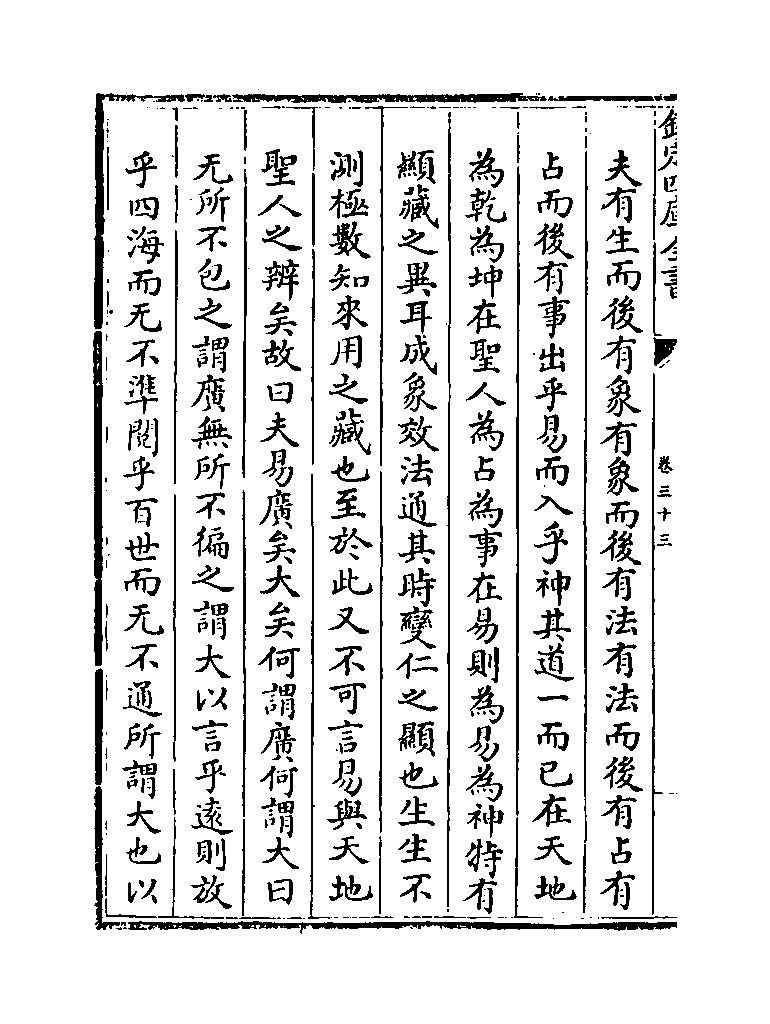 欽定四庫全書
卷三十三
夫有生而後有象有象而後有法有法而後有占有
占而後有事出乎易而入乎神其道一而已在天地
為乾為坤在聖人為占為事在易則為易為神特有
顯藏之異耳成象效法通其時變仁之顯也生生不
測極數知來用之藏也至於此又不可言易與天地
聖人之辨矣故曰夫易廣矣大矣何謂廣何謂大曰
无所不包之謂廣無所不徧之謂大以言乎逺則放
乎四海而无不準閱乎百世而无不通所謂大也以